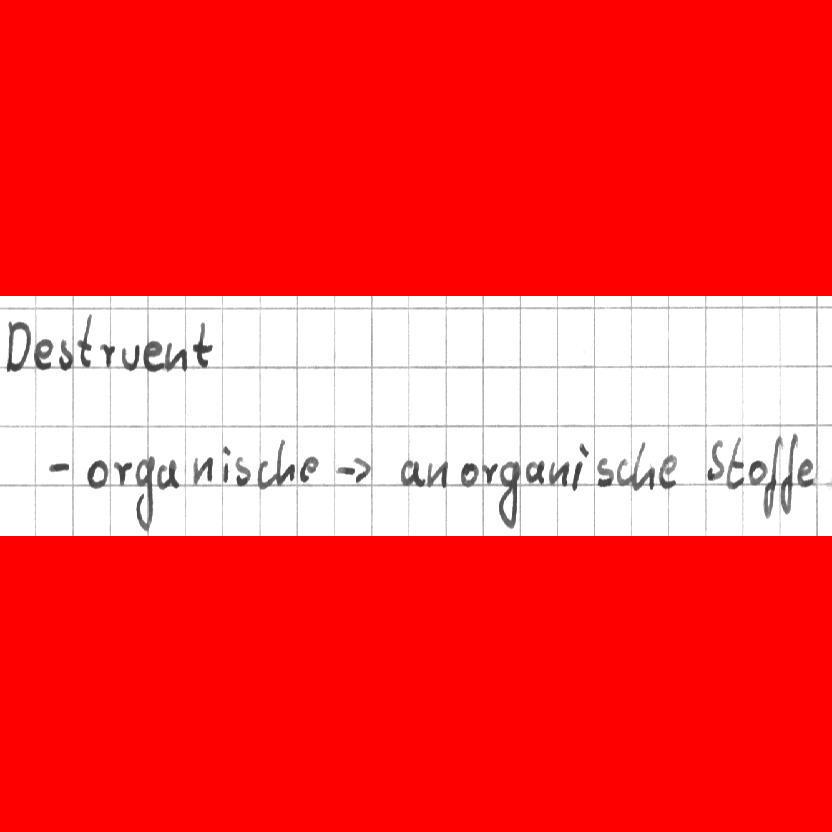 Destruent
- organische -> anorganische Stoffe